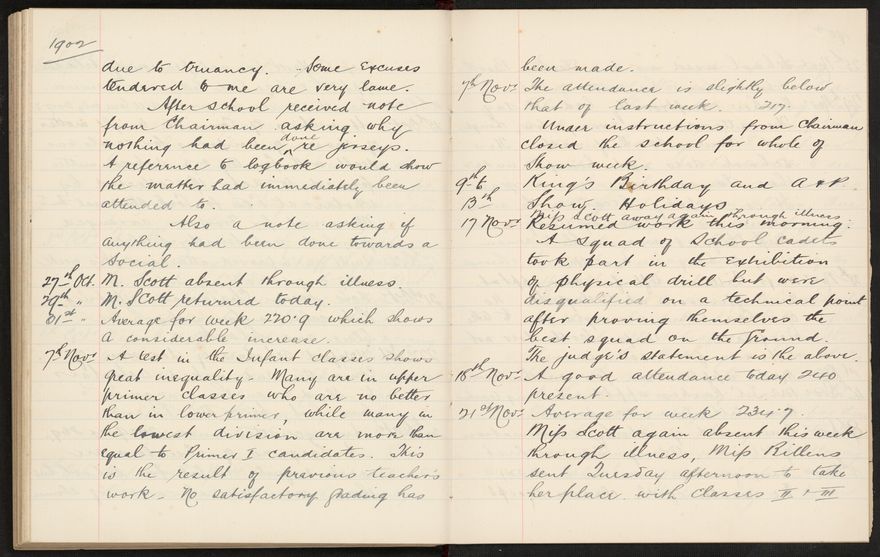 1902
due to truancy. Some excuses
tendered to me are very lame.
After school received note
from Chairman asking why
nothing had been done re jerseys.
A reference to logbook would show
the matter had immediately been
attended to.
Also a note asking if
anything had been done towards a
Social.
27th Oct. M. Scott absent through illness.
29th " M. Scott returned today.
31st " Average for week 220.9 which shows
a considerable increase.
7th Novr A test in the Infant classes shows
great inequality. Many are in upper
primer classes who are no better
than in lower primer, while many in
the lowest division are more than
equal to Primer I candidates. This
is the result of previous teacher's
work. No satisfactory grading has
been made.
7th Novr The attendance is slightly below
that of last week. 217.
Under instructions from Chairman
closed the school for whole of
Show week.
9th to King's Birthday and A & P.
13th Show. Holidays
Miss Scott away again through illness
17 Novr Resumed work this morning.
A squad of School cadets
took part in the Exhibition
of physical drill but were
disqualified on a technical point
after proving themselves the
best squad on the ground.
The judge's statement is the above.
18th Novr A good attendance today 240
present.
21st Novr Average for week 234.7.
Miss Scott again absent this week
through illness, Miss
sent Tuesday afternoon to take
her place with classes II & III